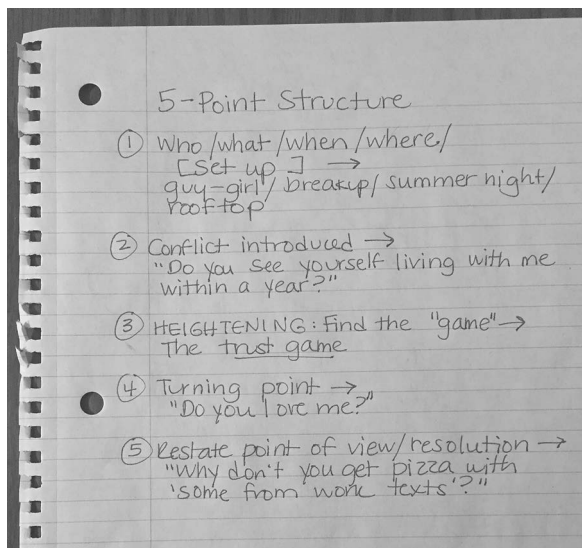 5-Point Structure
① Who/what/when/where/
[Set up] →
guy-girl/breakup/summer night/
rooftop
② Conflict introduced →
"Do you see yourself living with me
within a year?"
③ HEIGHTENING: Find the "game" →
The trust game
④ Turning point →
"Do you love me?"
⑤ Restate point of view/resolution →
"Why don't you get pizza with
'some from work texts'?"